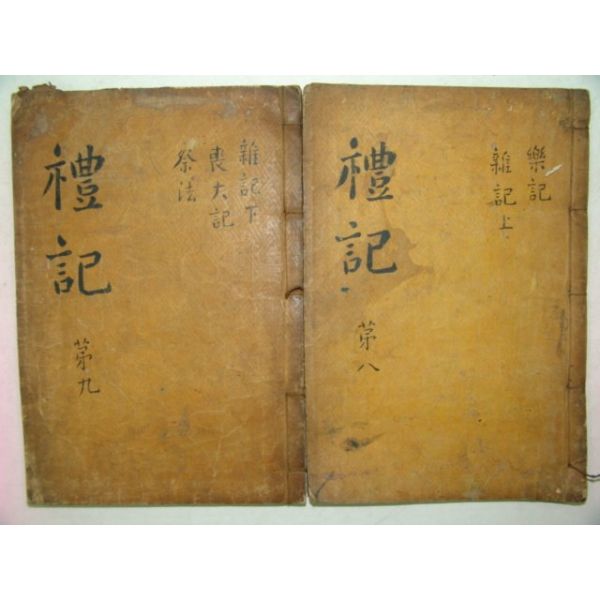 樂記
雜記上
禮記
第八
雜記下
喪大記
祭法
禮記
第九